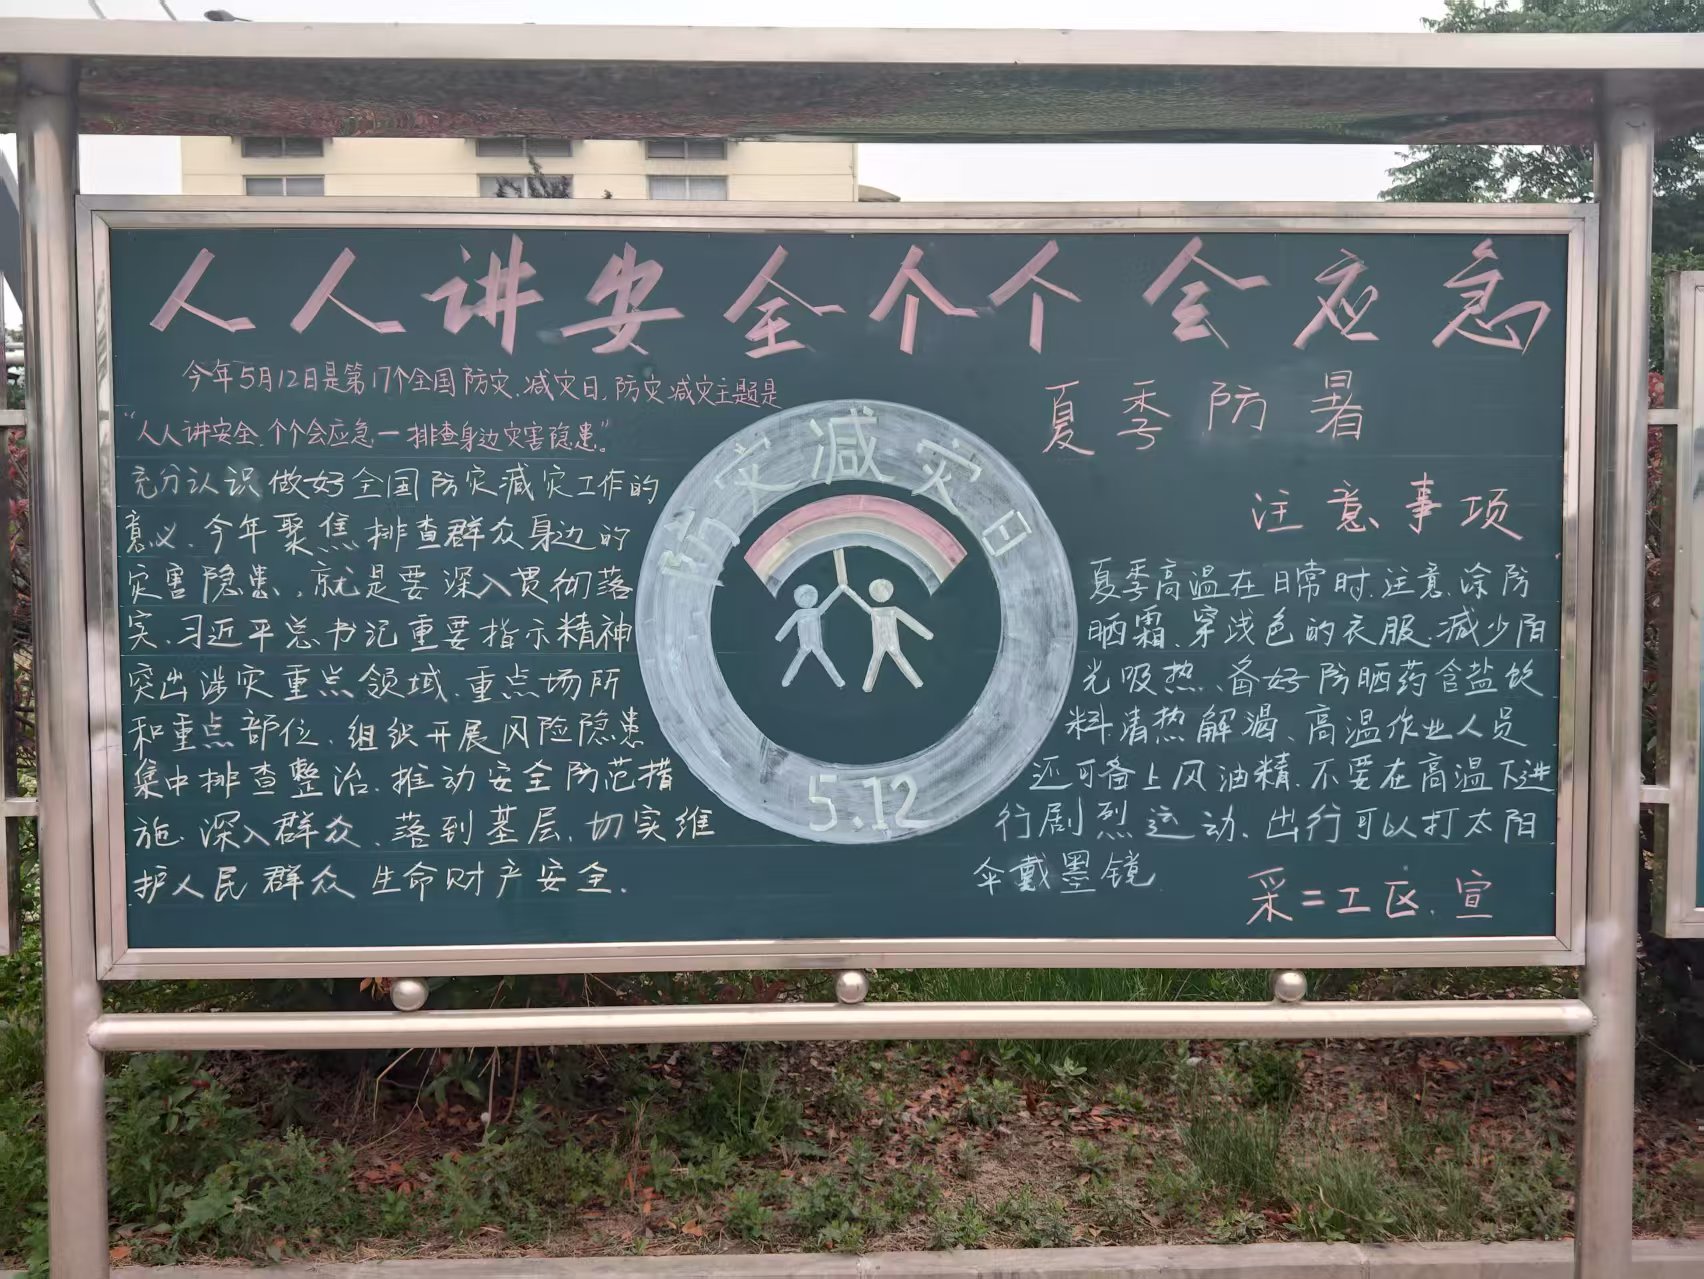 人人讲安全个个会应急
今年5月12日是第17个全国防灾.减灾日,防灾减灾主题是
“人人讲安全、个个会应急—排查身边灾害隐患”。
充分认识做好全国防灾减灾工作的
意义、今年聚焦排查群众身边的
灾害隐患,就是要深入贯彻落
实、习近平总书记重要指示精神
突出涉灾重点领域、重点场所
和重点部位、组织开展风险隐患
集中排查整治、推动安全防范措
施、深入群众、落到基层、切实维
护人民群众生命财产安全.
防灾减灾日
5.12
夏季防暑
注意事项
夏季高温在日常时、注意、涂防
晒霜、穿浅色的衣服、减少阳
光吸热、备好防晒药含盐饮
料、清热解渴、高温作业人员
还可备上风油精、不要在高温下进
行剧烈运动、出行可以打太阳
伞戴墨镜
采二工区.宣